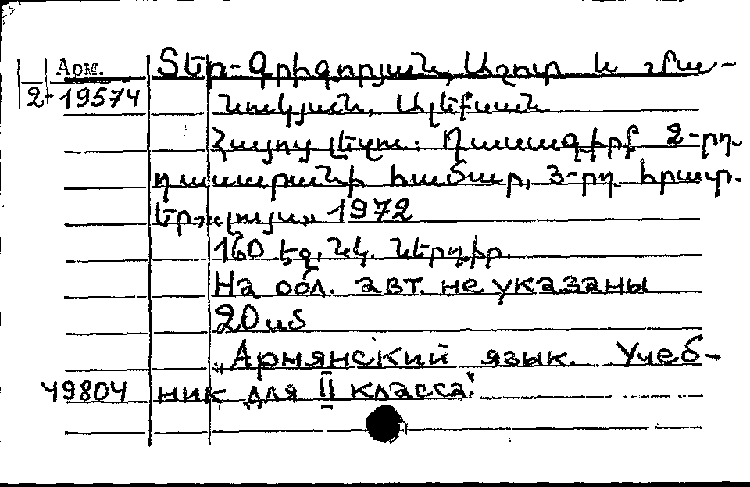 Арм.
2-19574
Տեր-Գրիգորյան, Աշոտ և Մա-
նուկյան, Ալեքսան
Հայոց լեզու: Դասագիրք 2-րդ
դասարանի համար, 3-րդ հրատ.
Եր., 1972
160 էջ, նկ. ներդիր.
На обл. авт. не указаны
20 սմ
„Армянский язык. Учеб-
49804 ник для II класса."